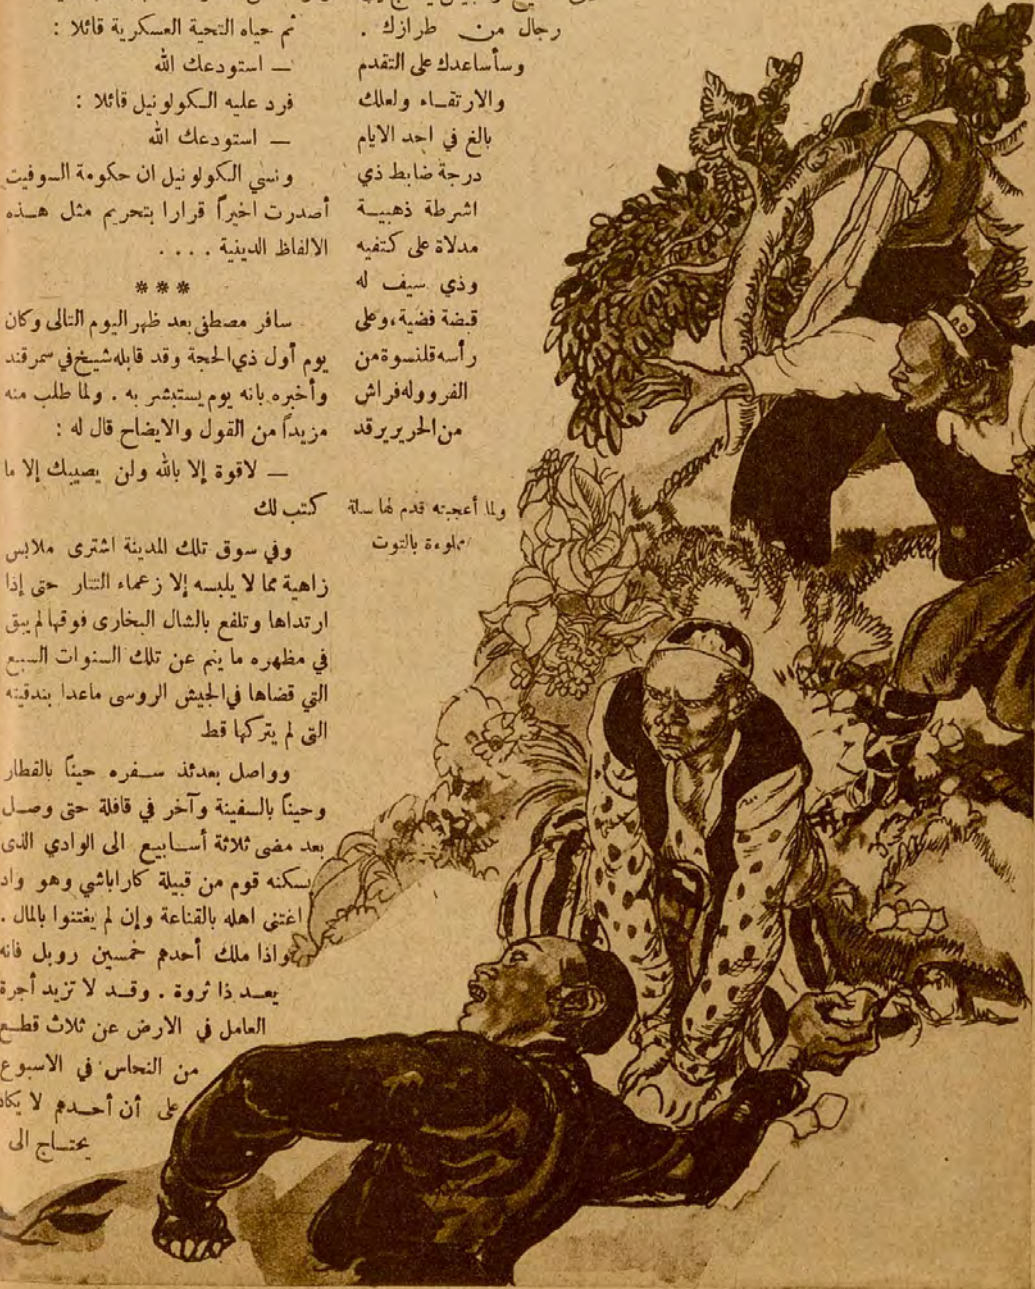 رجال من طرازك .
وسأساعدك على التقدم
والارتقاء ولعلك
بالغ في احد الايام
درجة ضابط ذي
اشرطة ذهبية
مدلاة على كتفيه
وذي سيف له
قبضة فضية، وعلى
رأسه قلنسوة من
الفرو وله فراش
من الحرير يرقد
ولما أعجبته قدم لها سلة
مملوءة بالتوت
ثم حياه التحية العسكرية قائلا :
— استودعك الله
فرد عليه الكولونيل قائلا :
— استودعك الله
ونسي الكولونيل ان حكومة السوفيت
أصدرت اخيراً قرارا بتحريم مثل هذه
الالفاظ الدينية . . . .
***
سافر مصطفى بعد ظهر اليوم التالى وكان
يوم أول ذي الحجة وقد قابله شيخ في سمرقند
وأخبره بانه يوم يستبشر به . ولما طلب منه
مزيداً من القول والايضاح قال له :
— لاقوة إلا بالله ولن يصيبك إلا ما
كتب لك
وفي سوق تلك المدينة اشترى ملابس
زاهية مما لا يلبسه إلا زعماء التتار حتى إذا
ارتداها وتلفع بالشال البخارى فوقها لم يبق
في مظهره ما ينم عن تلك السنوات السبع
التي قضاها في الجيش الروسى ماعدا بندقيته
التى لم يتركها قط
وواصل بعدئذ سفره حيناً بالقطار
وحيناً بالسفينة وآخر في قافلة حتى وصل
بعد مضى ثلاثة أسابيع الى الوادي الذى
يسكنه قوم من قبيلة كاراباشي وهو واد
اغتنى اهله بالقناعة وإن لم يغتنوا بالمال .
واذا ملك أحدهم خمسين روبل فانه
يعد ذا ثروة . وقد لا تزيد أجرة
العامل في الارض عن ثلاث قطع
من النحاس في الاسبوع
على أن أحدهم لا يكاد
يحتاج الى